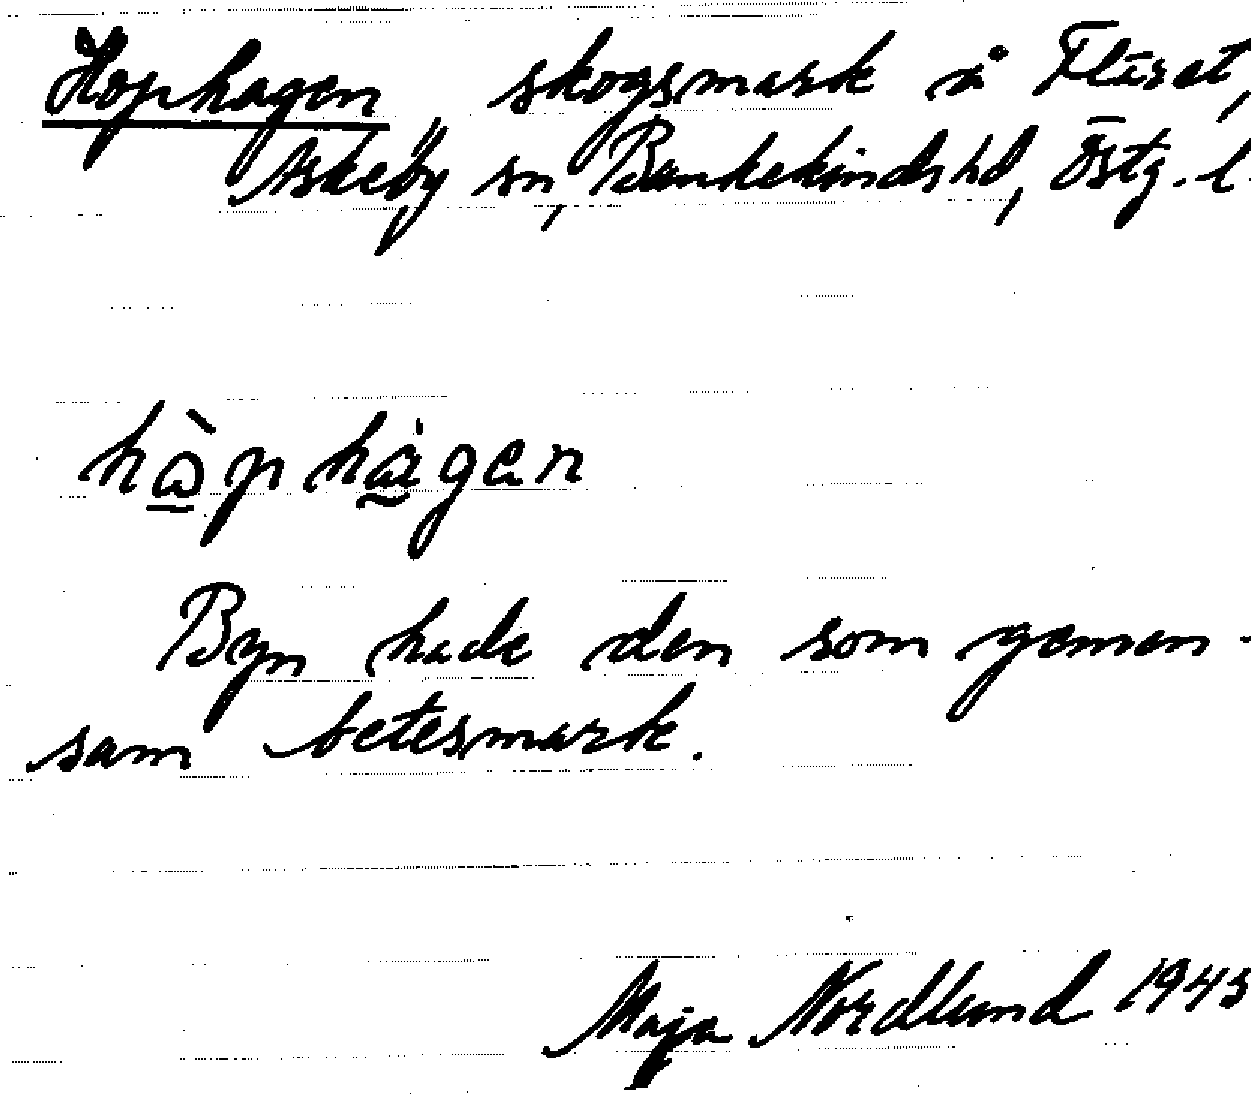 Hophagen skogsmark å Fläret,
Askeby sn, Bankekinds hd, Östg. l.
hàphàgen
Byn hade den som gemen-
sam betesmark.
Maja Nordlund 1943